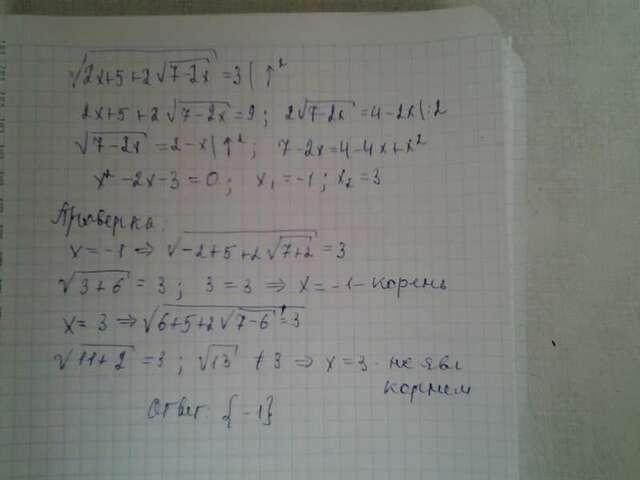 √(2x+5+2√(7-2x)) = 3 | ↑²
2x+5+2√(7-2x) = 9 ; 2√(7-2x) = 4-2x | :2
√(7-2x) = 2-x | ↑² ; 7-2x = 4-4x+x²
x²-2x-3 = 0 ; x₁ = -1 ; x₂ = 3
Проверка:
x = -1 ⇒ √(-2+5+2√(7+2)) = 3
√(3+6) = 3 ; 3 = 3 ⇒ x = -1 - корень
x = 3 ⇒ √(6+5+2√(7-6)) = 3
√(11+2) = 3 ; √13 ≠ 3 ⇒ x = 3 - не явл
корнем
Ответ: {-1}